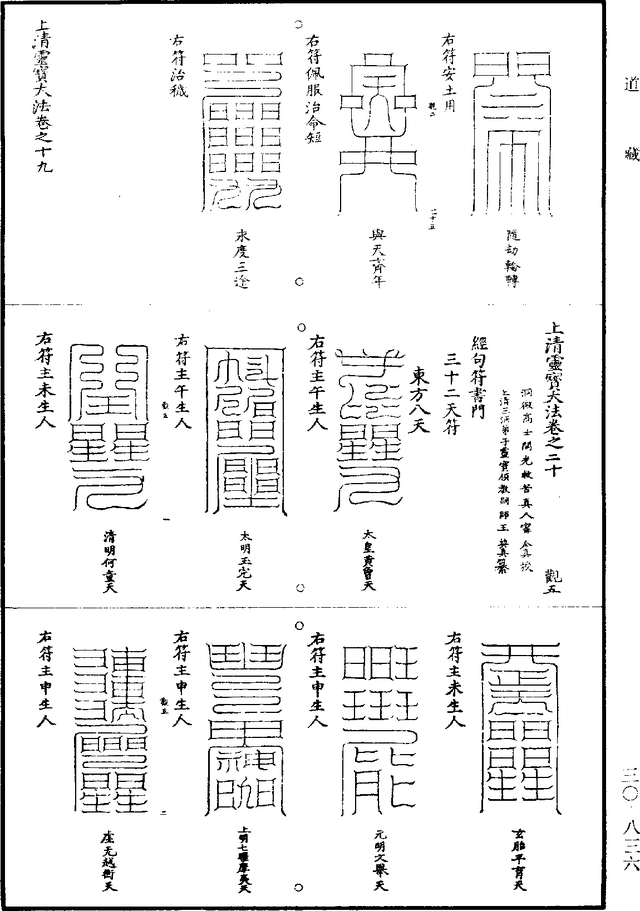 道藏
隨劫輪轉
右符安土用
與天齊年
右符佩服治命短
永度三途
右符治穢
上清靈寶大法卷之十九
上清靈寶大法卷之二十
觀五
洞微高士開光救苦真人甯全真授
上清三洞弟子靈寶領教嗣師王契真纂
經句符書門
三十二天符
東方八天
太皇黃曾天
右符主午生人
太明玉完天
右符主午生人
清明何童天
右符主未生人
玄胎平育天
右符主未生人
元明文舉天
右符主申生人
上明七曜摩夷天
右符主申生人
虛无越衡天
右符主申生人
三〇·八三六